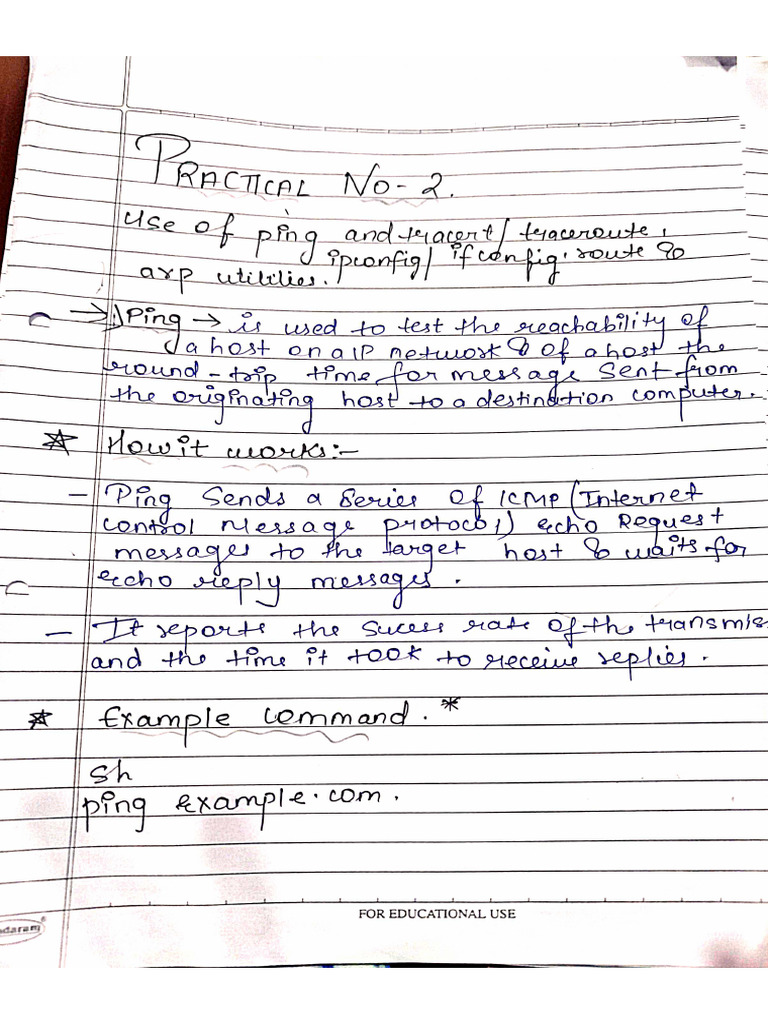 PRACTICAL NO-2.
Use of ping and tracert/traceroute,
ipconfig/ifconfig, route &
arp utilities.
→ 1) Ping → is used to test the reachability of
a host on a IP network & of a host the
round-trip time for message sent from
the originating host to a destination computer.
* How it works:-
- Ping Sends a series of ICMP (Internet
control Message protocol) echo Request
messages to the target host & waits for
echo reply messages.
- It reports the sucess rate of the transmis
and the time it took to receive replies.
* Example command. *
sh
ping example.com.
FOR EDUCATIONAL USE
daram®